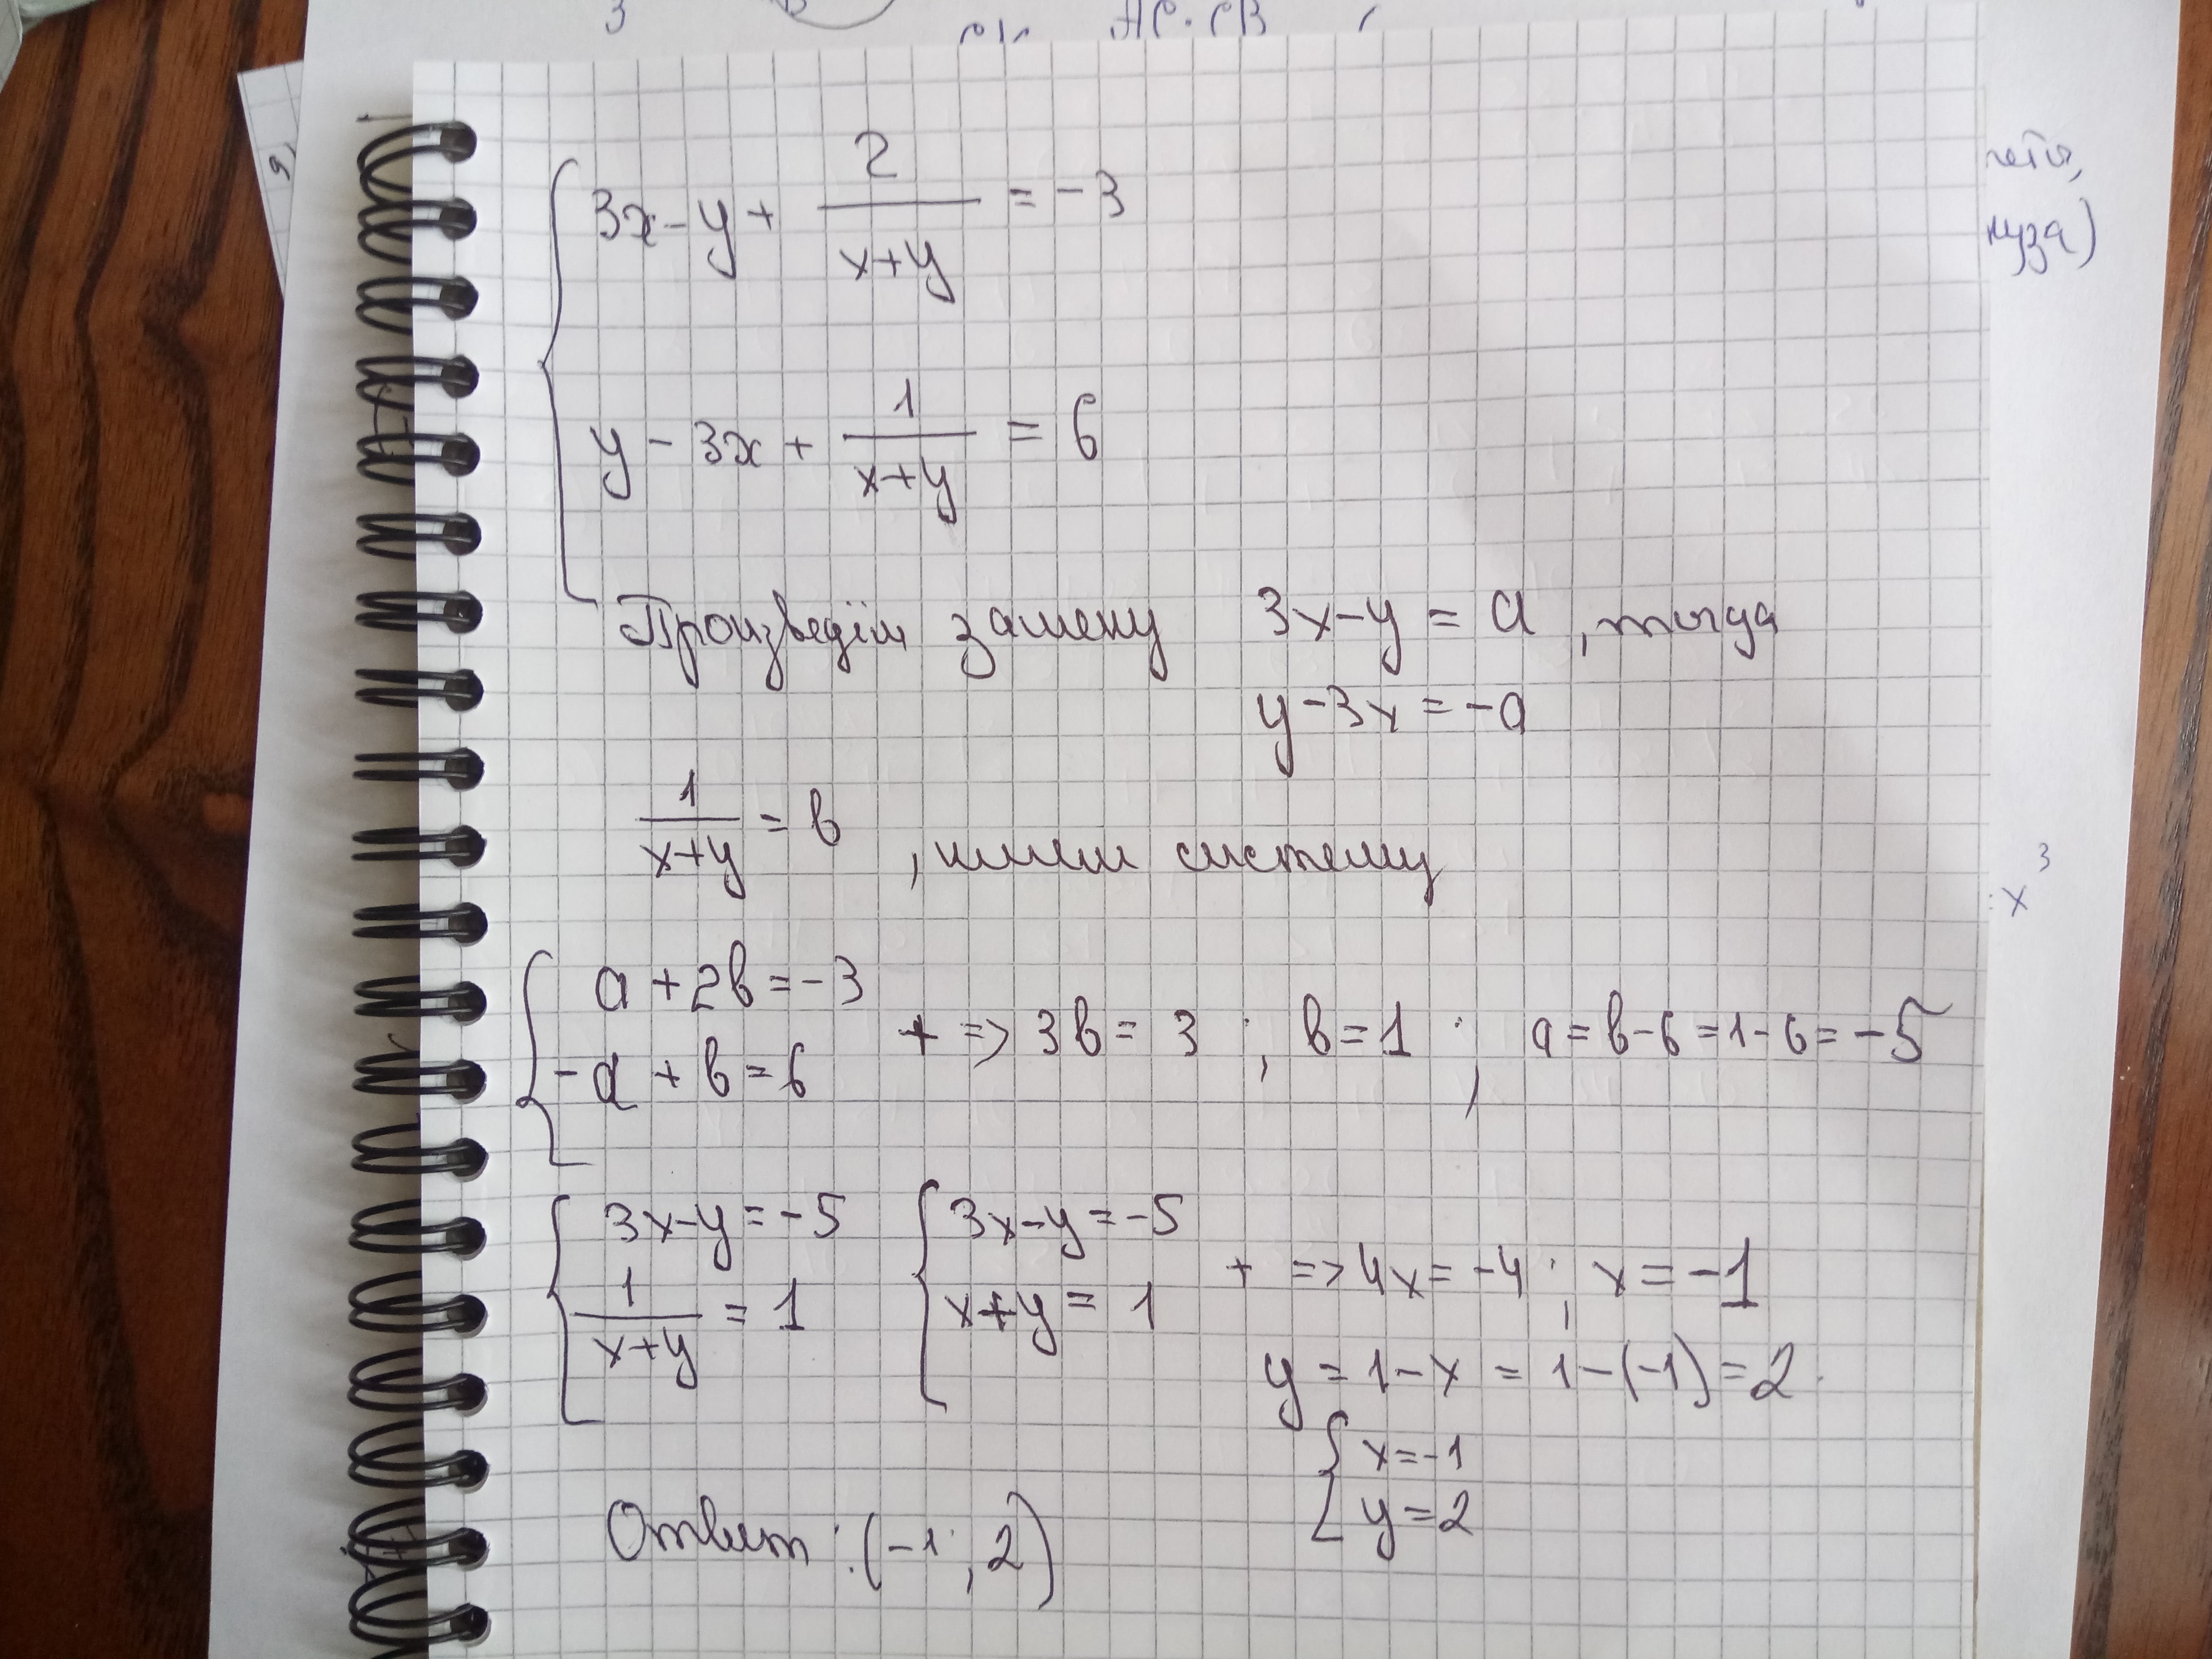 3
AC·CB
9,
нета,
3x-y+ 2/(x+y) = -3
y - 3x + 1/(x+y) = 6
Произведём замену 3x-y = a, тогда
y-3x = -a
1/(x+y) = b, имеем систему
x³
{ a + 2b = -3
-a + b = 6
+ => 3b = 3; b = 1; a = b-6 = 1-6 = -5
{ 3x-y = -5
1/(x+y) = 1
{ 3x-y = -5
x+y = 1
+ => 4x = -4; x = -1
y = 1-x = 1-(-1) = 2
{ x = -1
y = 2
Ответ: (-1; 2)